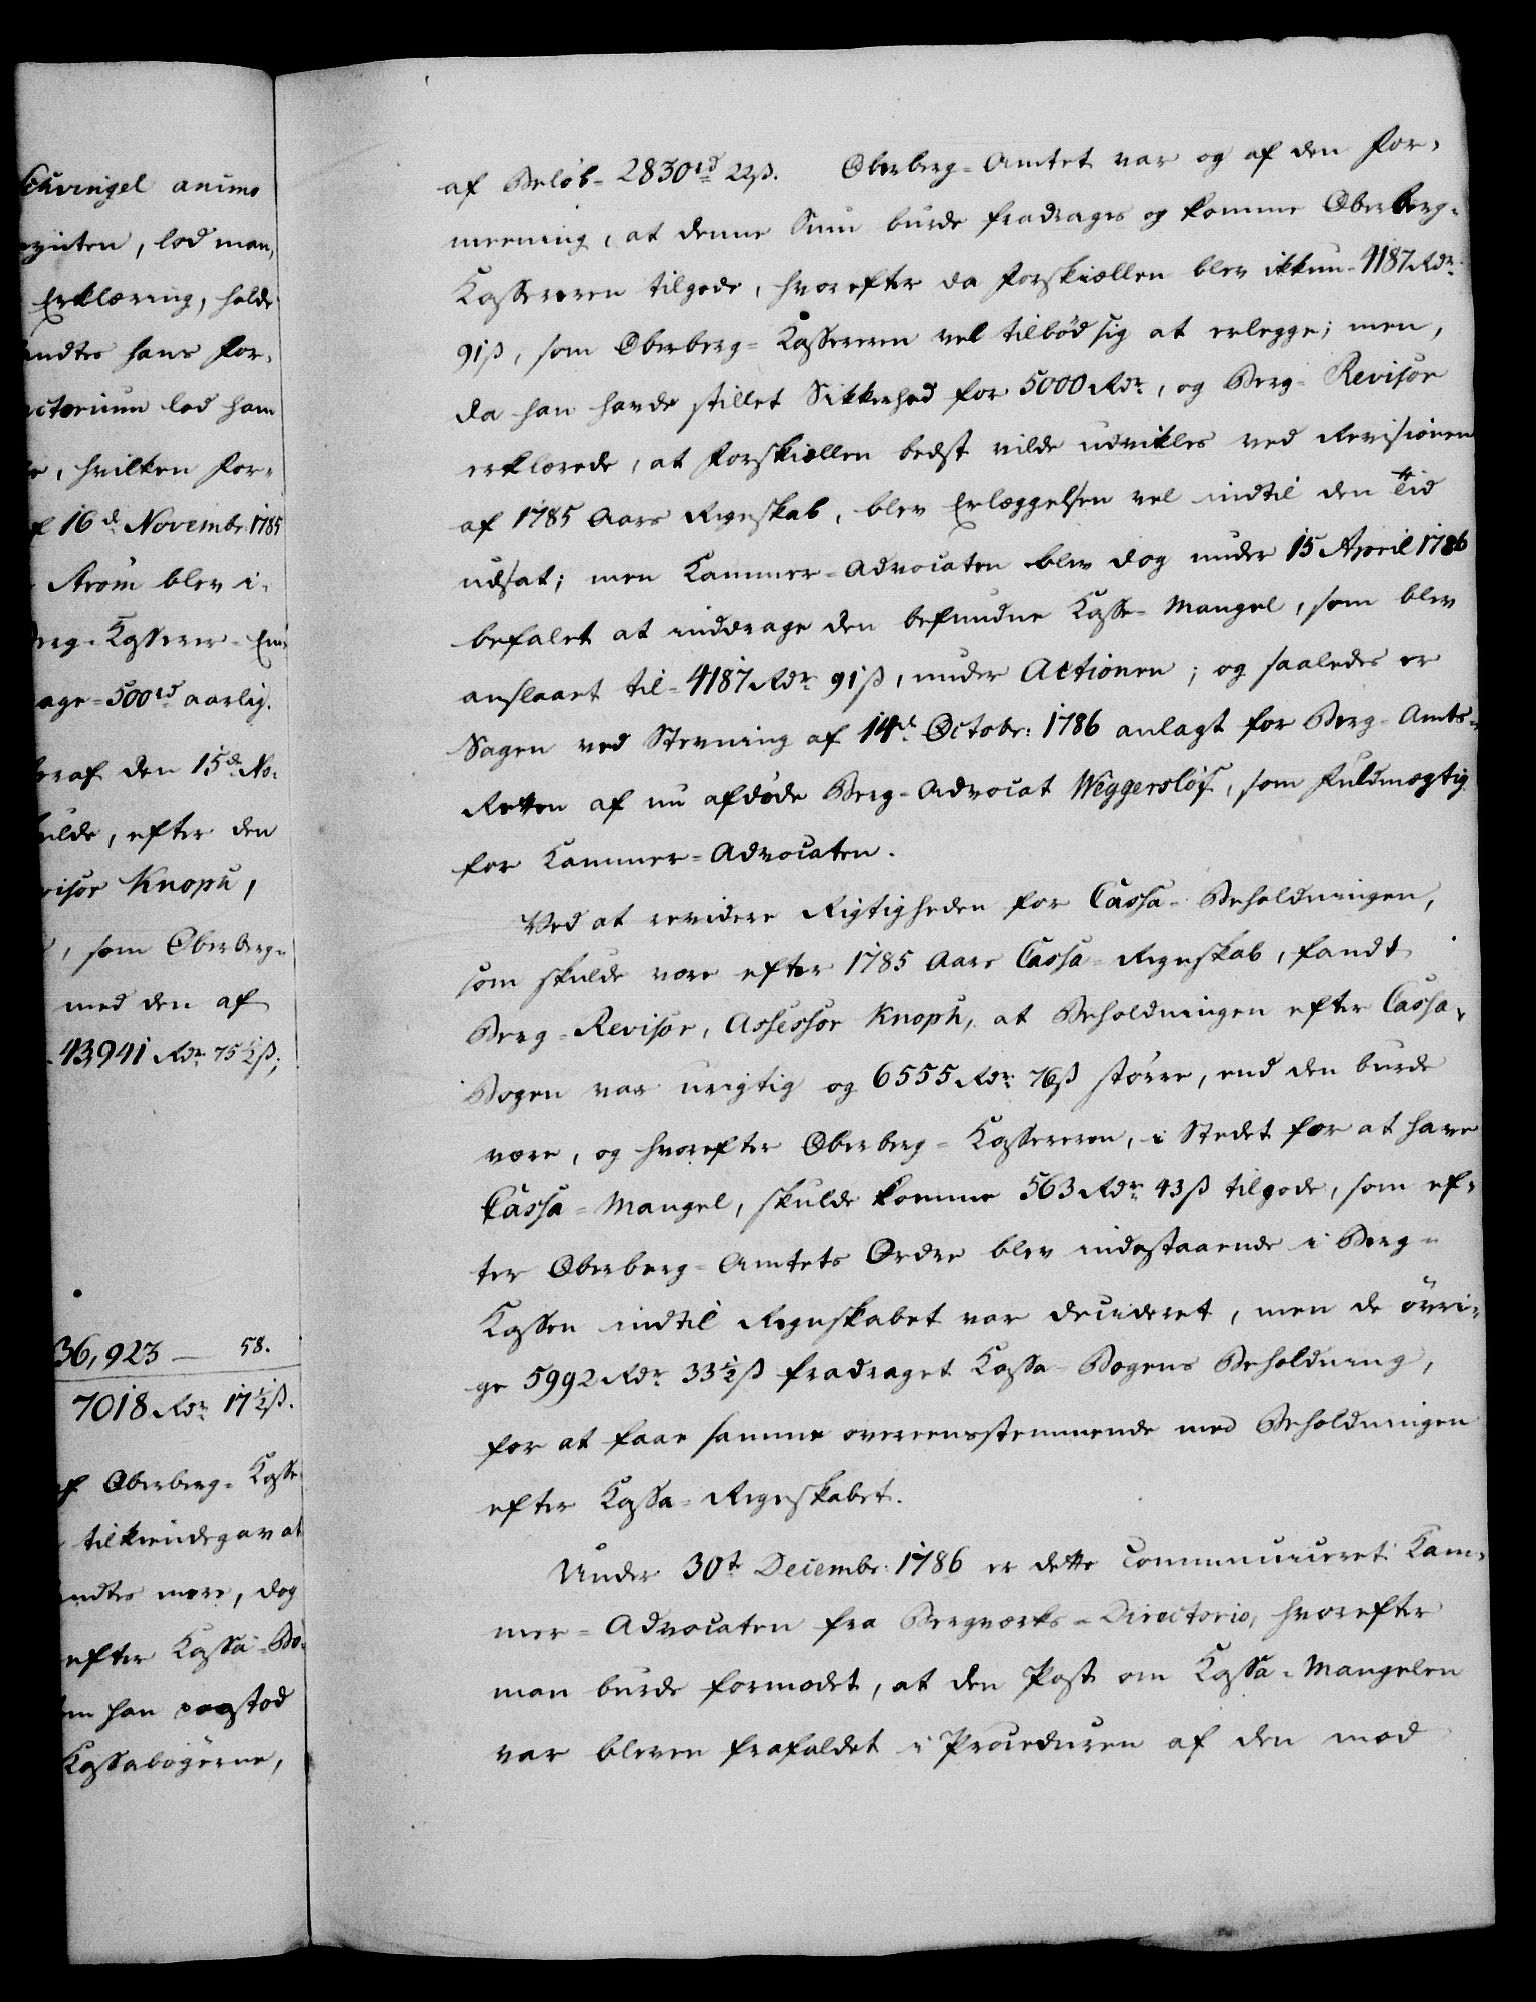 Schwingel animo
lod man,
Erklæring, holde
hans For-
lod ham
hvilken For-
16d Novembr 1785
Strøm blev i-
Berg-Casserer-Em
500rd aarlig.
heraf den 15de No-
efter den
Knoph,
, som Oberberg-
med den af
43,941 Rdr 75½ß;
36,923 — 58.
7018 Rdr 17½ß.
af Oberberg-Casse
tilkiendegav at
mere, dog
efter Cassa-Bo-
han paastod
Cassabøgerne,
af Beløb - 2830rd 22ß. Oberberg-Amtet var og af den For-
meening, at denne Sum burde fradrages og komme Oberberg-
Cassereren tilgode, hvorefter da Forskiællen blev ikkun - 4187 Rdr
91ß, som Oberberg-Cassereren vel tilbød sig at erlegge; men,
da han havde stillet Sikkerhed for 5000 Rdr, og Berg-Revisor
erklærede, at Forskiællen bedst vilde udvikles ved Revisionen
af 1785 Aars Regnskab, blev Erlæggelsen vel indtil den Tid
udsat; men Kammer-Advocaten blev dog under 15 April 1786
befalet at inddrage den befundne Casse-Mangel, som blev
anslaaet til - 4187 Rdr 91ß, under Actionen; og saaledes er
Sagen ved Stevning af 14d Octobr: 1786 anlagt for Berg-Amts-
Retten af nu afdøde Berg-Advocat Weggersløf, som Fuldmægtig
for Kammer-Advocaten.
Ved at revidere Rigtigheden for Cassa-Beholdningen,
som skulde være efter 1785 Aars Cassa-Regnskab, fandt
Berg-Revisor, Assessor Knoph, at Beholdningen efter Cassa-
Bogen var urigtig og 6555 Rdr 76ß større, end den burde
være, og hvorefter Oberberg-Cassereren, i Stedet for at have
Cassa-Mangel, skulde komme 563 Rdr 43ß tilgode, som ef-
ter Oberberg-Amtets Ordre blev indestaaende i Berg-
Cassen indtil Regnskabet var decideret, men de øvri-
ge 5992 Rdr 33½ß fradraget Cassa-Bogens Beholdning,
for at faae samme overeensstemmende med Beholdningen
efter Cassa-Regnskabet.
Under 30t Decembr: 1786 er dette communiceret Kam-
mer-Advocaten fra Bergværks-Directorio, hvorefter
man burde formodet, at den Post om Cassa-Mangelen
var bleven frafaldet i Proceduren af den mod